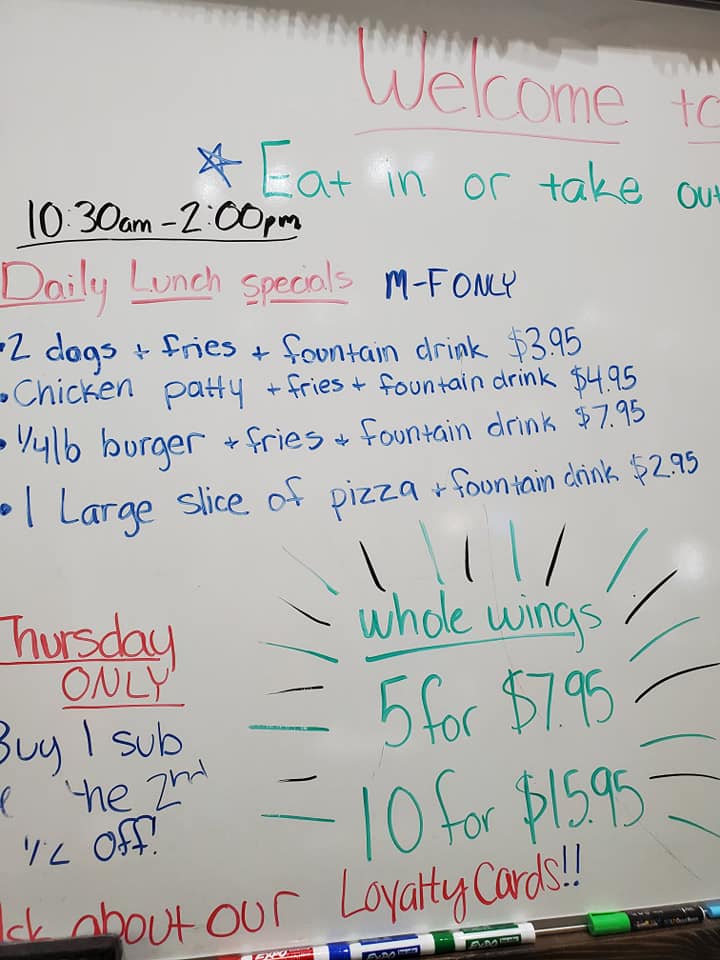 Welcome to
Eat in or take out
10:30am - 2:00pm
Daily Lunch specials M-F ONLY
• 2 dogs + fries + fountain drink $3.95
• Chicken patty + fries + fountain drink $4.95
• 1/4lb burger + fries + fountain drink $7.95
• 1 Large slice of pizza + fountain drink $2.95
Thursday
ONLY
Buy 1 sub
the 2nd
1/2 off!
whole wings
5 for $7.95
10 for $15.95
Ask about our Loyalty Cards!!
EXPO EXPO EXPO